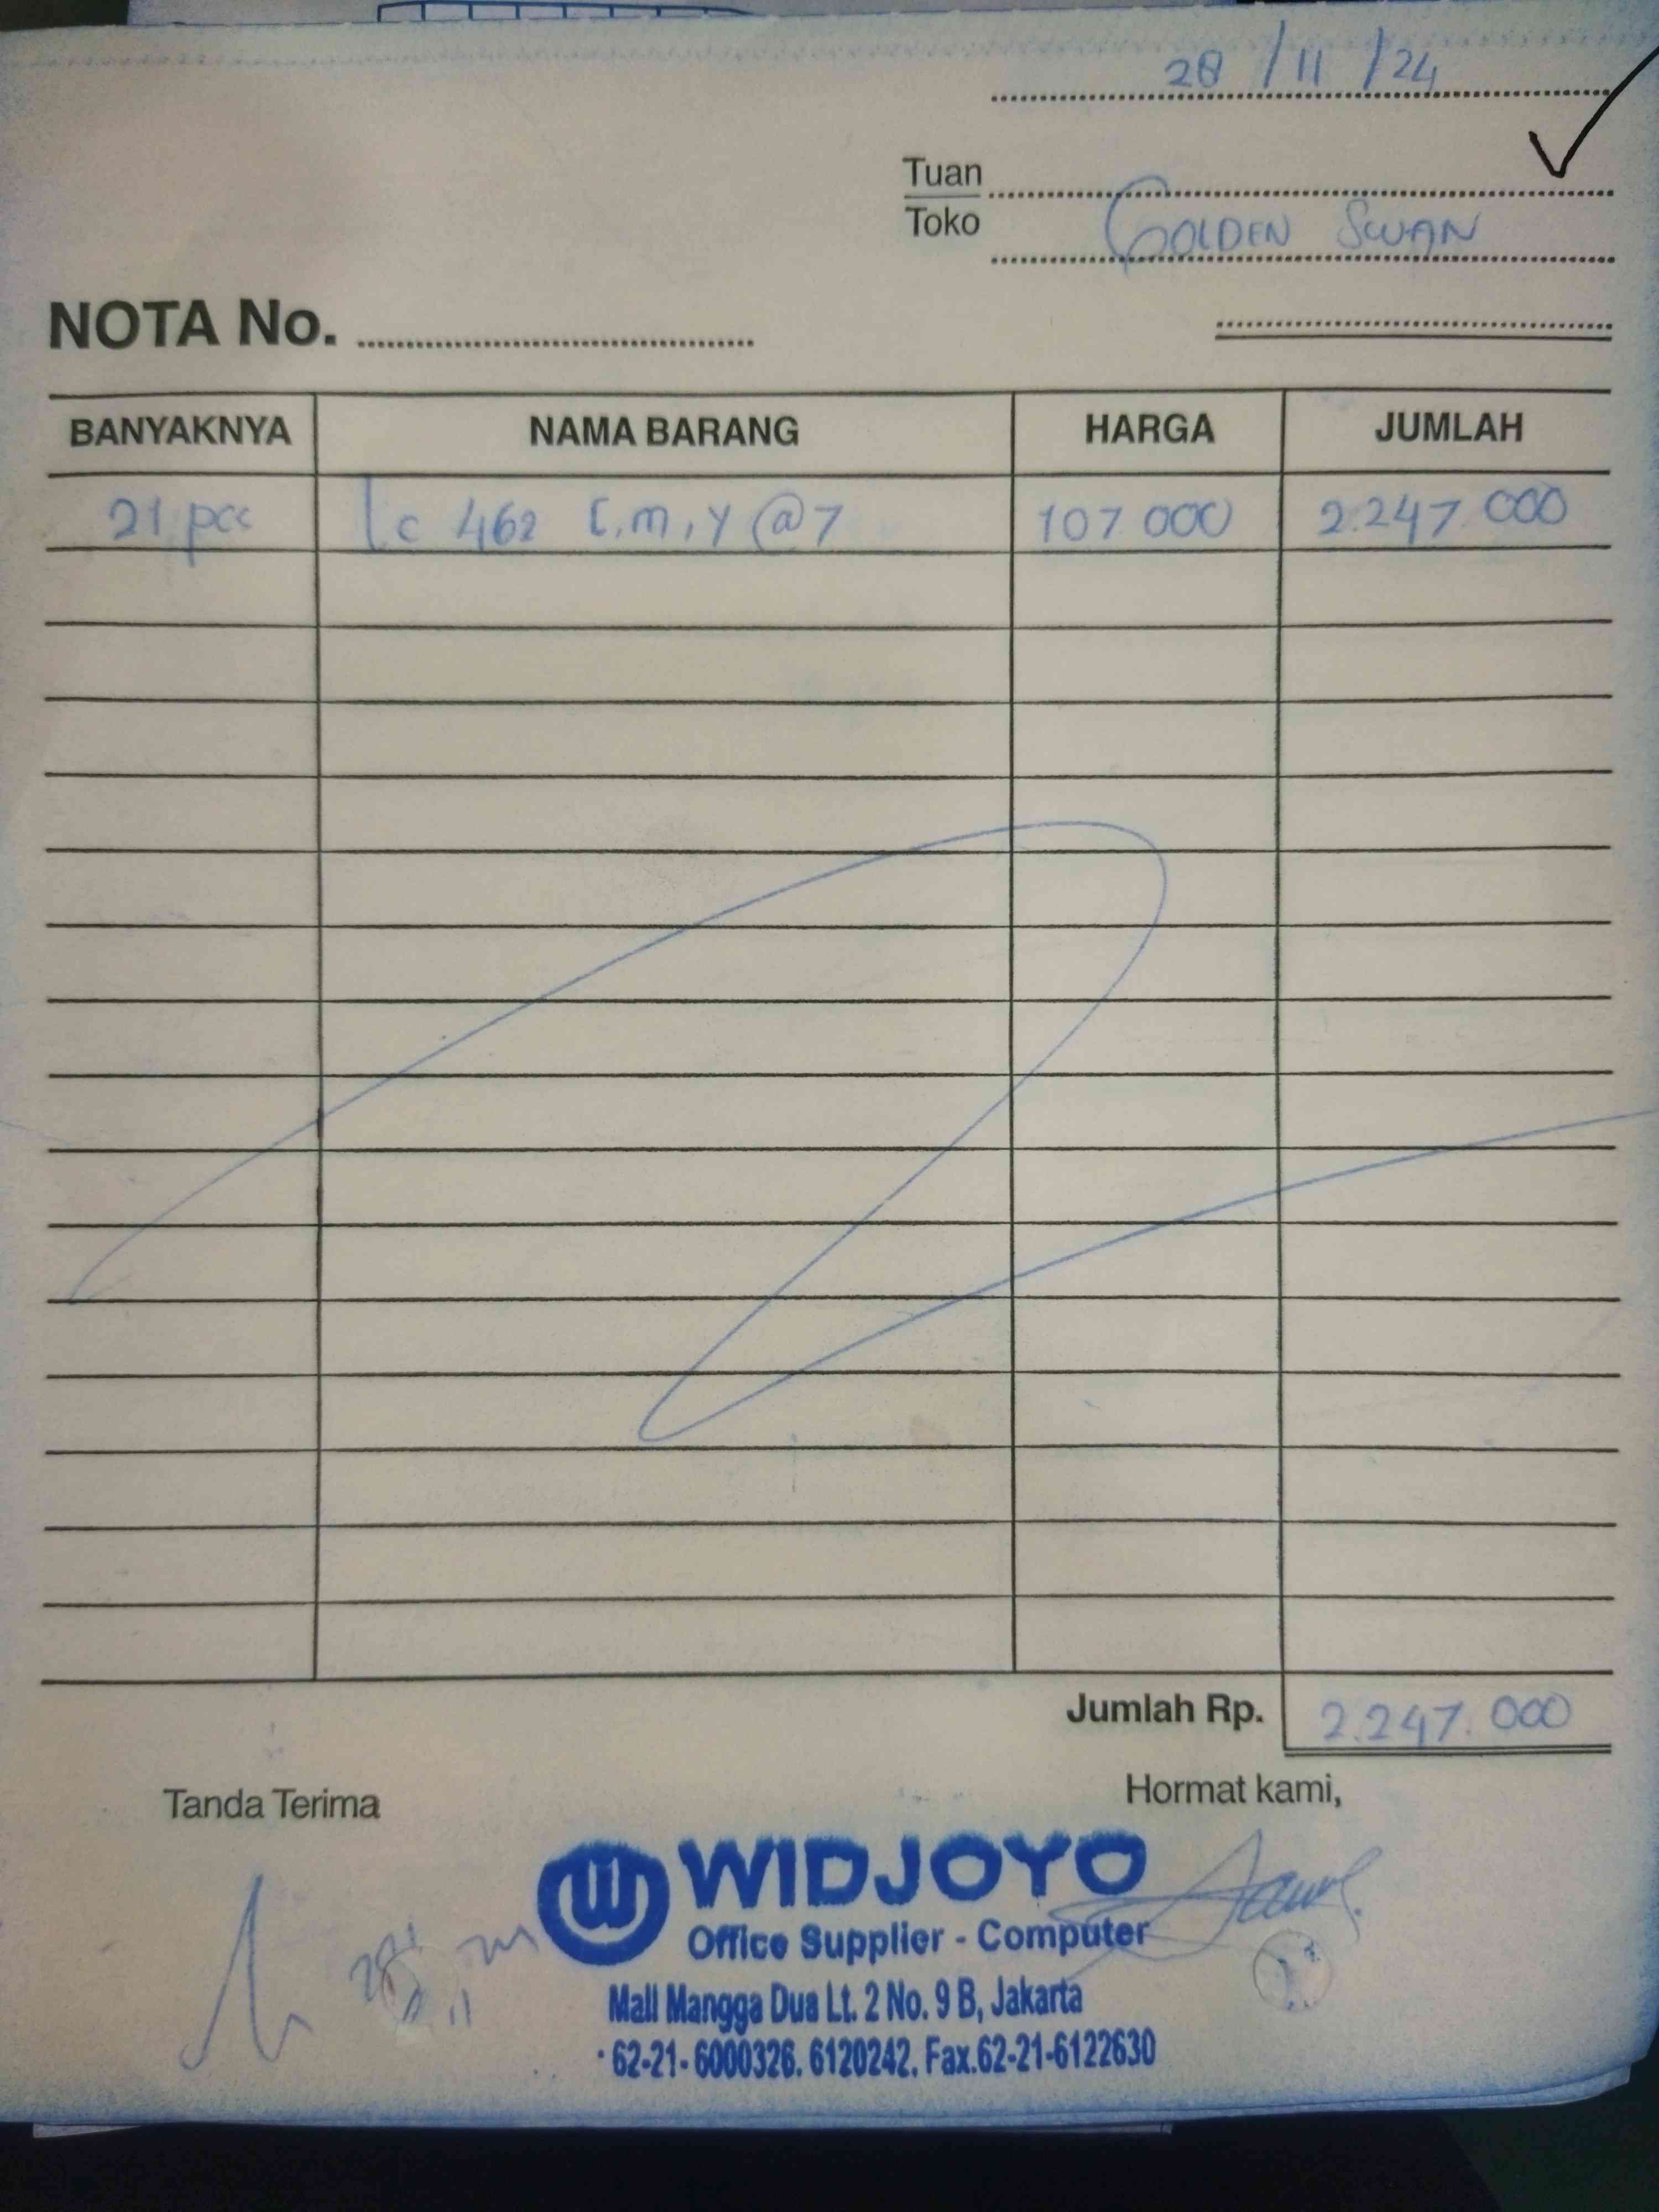 28 / 11 / 24
Tuan
Toko GOLDEN SWAN
NOTA No.
BANYAKNYA NAMA BARANG HARGA JUMLAH
21 pcs Lc 462 C, M, Y @7 107.000 2.247.000
Jumlah Rp. 2.247.000
Tanda Terima Hormat kami,
WIDJOYO
Office Supplier - Computer
Mall Mangga Dua Lt. 2 No. 9 B, Jakarta
62-21-6000326. 6120242. Fax.62-21-6122630